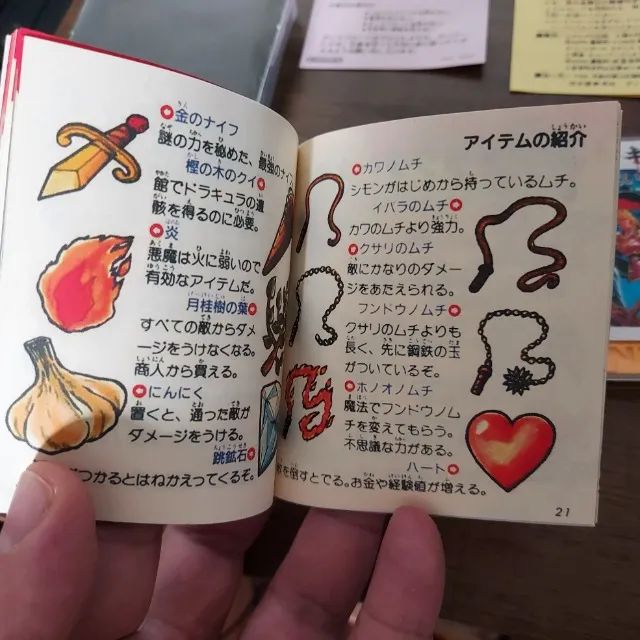 金のナイフ
謎の力を秘めた、最強のナイフ
樫の木のクイ
館でドラキュラの遺
骸を得るのに必要。
炎
悪魔は火に弱いので
有効なアイテムだ。
月桂樹の葉
すべての敵からダメ
ージをうけなくなる。
商人から買える。
にんにく
置くと、通った敵が
ダメージをうける。
跳鉱石
つかるとはねかえってくるぞ。
アイテムの紹介
カワノムチ
シモンがはじめから持っているムチ。
イバラのムチ
カワのムチより強力。
クサリのムチ
敵にかなりのダメー
ジをあたえられる。
フンドウノムチ
クサリのムチよりも
長く、先に鋼鉄の玉
がついているぞ。
ホノオノムチ
魔法でフンドウノム
チを変えてもらう。
不思議な力がある。
ハート
を倒すとでる。お金や経験値が増える。
21